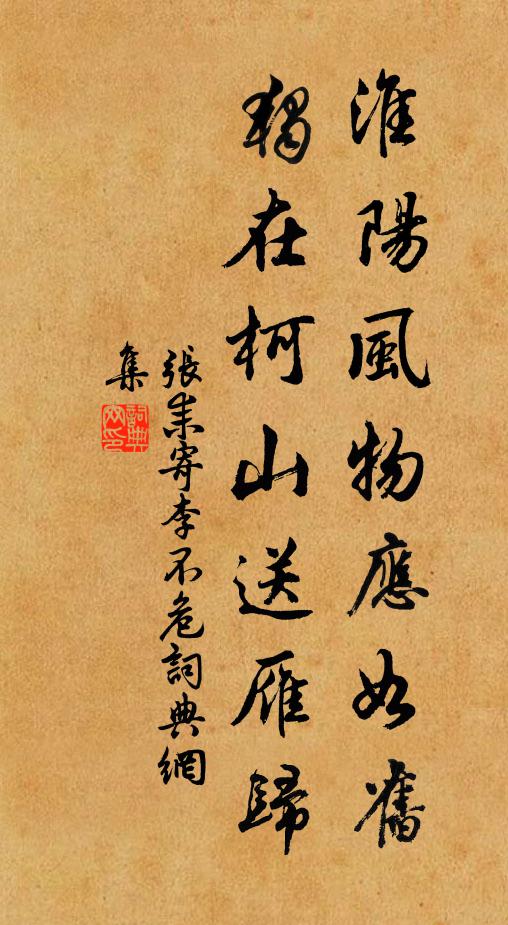 淮陽風物應如舊
獨在柯山送雁歸
張耒寄李不危詞典網
集
詞典
網印